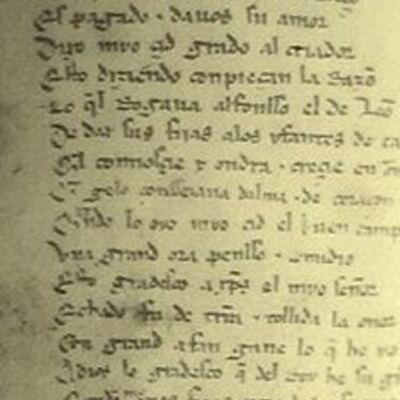 El pagado ⁊ dauos su amor
Dixo myo çid grado al criador
Esto diziendo conpieçan la Razõ
Lo q̃l Rogaua alfonsso el de Leõ
De dar sus fijas alos yfantes de ca
Q̃l connosçie y ondra ⁊ creçie en
Q̃ gelo conseiaua dalma ⁊ de coraçon
Quãdo lo oyo myo çid el buen camp
Vna grand ora pensso ⁊ comidio
Esto gradesco a xp̃s el myo señor
Echado fu de tr̃a ⁊ tollida la onor
Con grand afan gane lo q̃ he yo
A dios lo gradesco q̃ del Rey he su gr